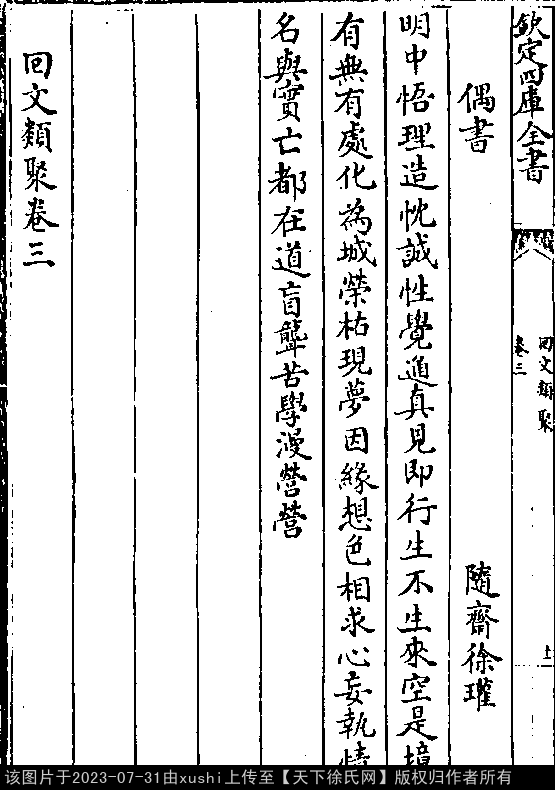 欽定四庫全書
回文類聚
卷三
偶書
隨齋徐瓘
明中悟理造忱誠性覺逼真見即行生不生來空是境
有無有處化為城榮枯現夢因緣想色相求心妄執情
名與實亡都在道盲聾苦學漫營營
回文類聚卷三
该图片于2023-07-31由xushi上传至【天下徐氏网】版权归作者所有